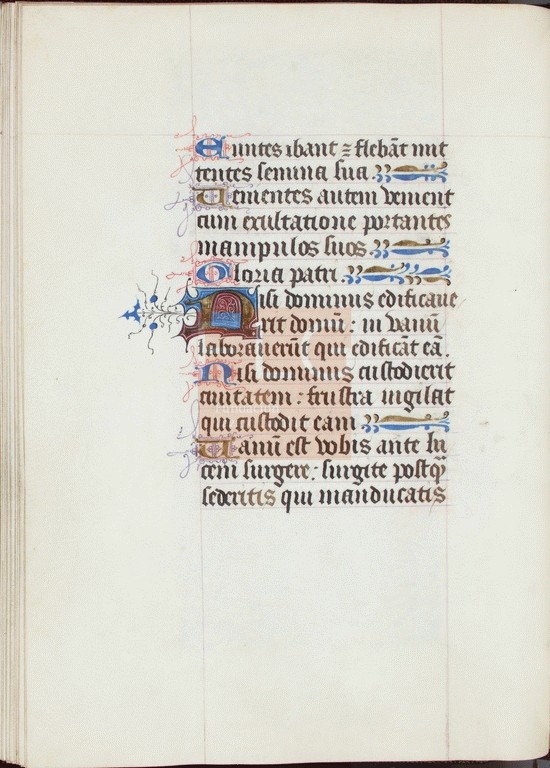 Euntes ibant ⁊ flebãt mit
tentes semina sua.
Uenientes autem venient
cum exultatione portantes
manipulos suos
Gloria patri.
Nisi dominus edificaue
rit domũ: in vanũ
laborauerũt qui edificãt eã.
Nisi dominus custodierit
ciuitatem: frustra uigilat
qui custodit eam
Uanũ est vobis ante lu
cem surgere: surgite postqͣ
sederitis qui manducatis